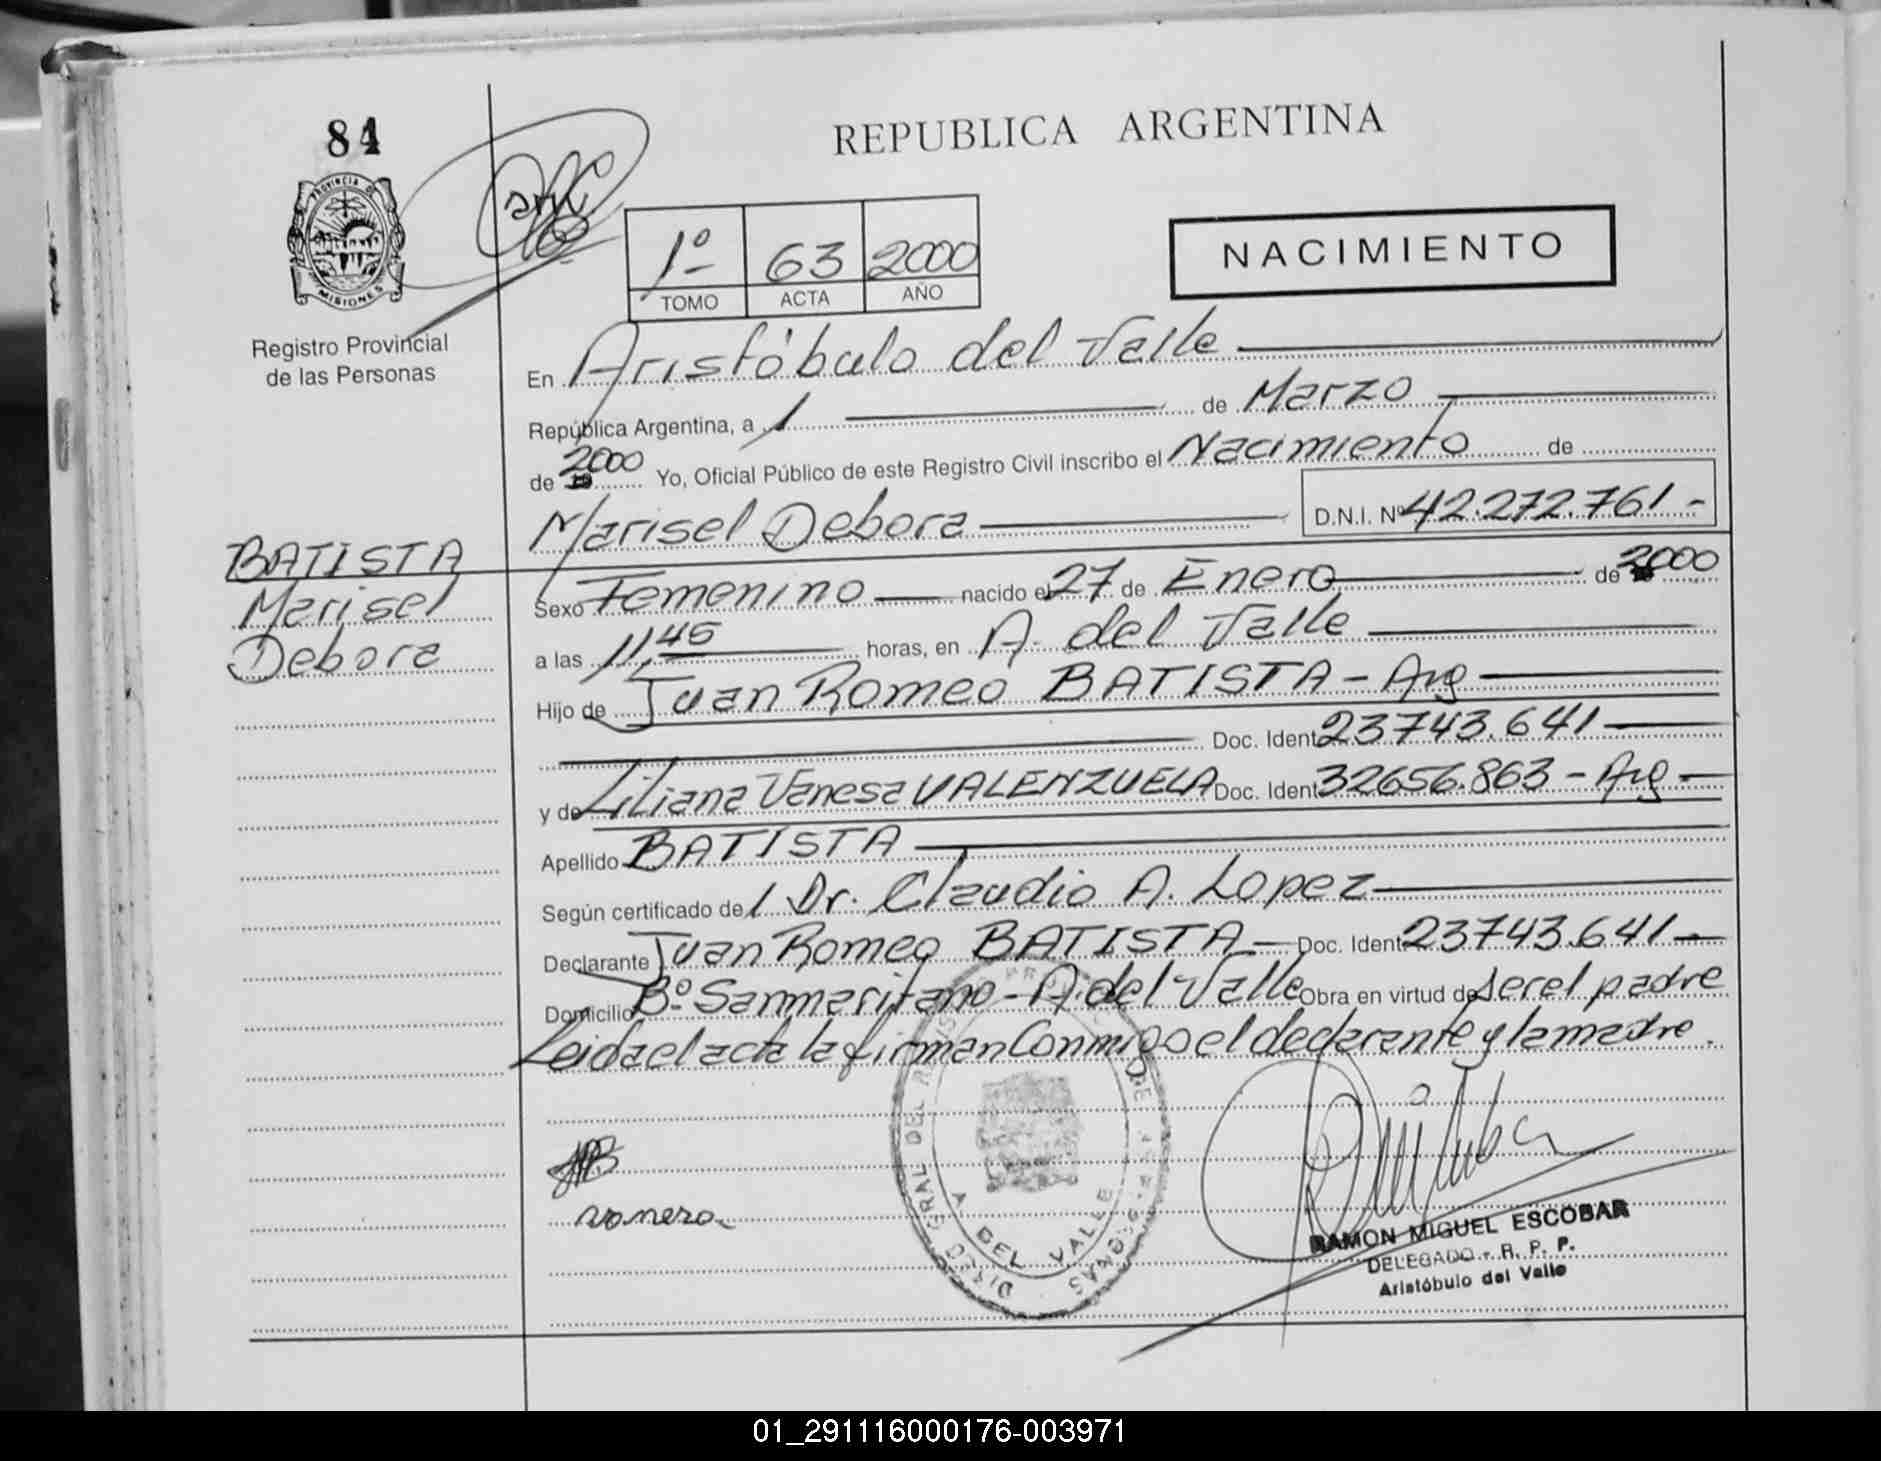 84
REPUBLICA ARGENTINA
PROVINCIA DE
MISIONES
1º 63 2000
TOMO ACTA AÑO
NACIMIENTO
Registro Provincial
de las Personas
En Aristóbulo del Valle
República Argentina, a 1 de Marzo
de 2000 Yo, Oficial Público de este Registro Civil inscribo el Nacimiento de
Marisel Debora D.N.I. Nº 42.272.761-
BATISTA
Marisel
Debora
Sexo Femenino nacido el 27 de Enero de 2000
a las 11,45 horas, en A. del Valle
Hijo de Juan Romeo BATISTA - Arg
Doc. Ident 23743.641
y de Liliana Vanesa VALENZUELA Doc. Ident 32656.863 - Arg -
Apellido BATISTA
Según certificado del Dr. Claudio A. Lopez
Declarante Juan Romeo BATISTA - Doc. Ident 23743.641 -
Domicilio Bº Sanmaritano - A. del Valle Obra en virtud de ser el padre
Leida el acta la firman Conmigo el declarante y la madre.
A DEL VALLE
RAMON MIGUEL ESCOBAR
DELEGADO - R. P. P.
Aristóbulo del Valle
01_291116000176-003971